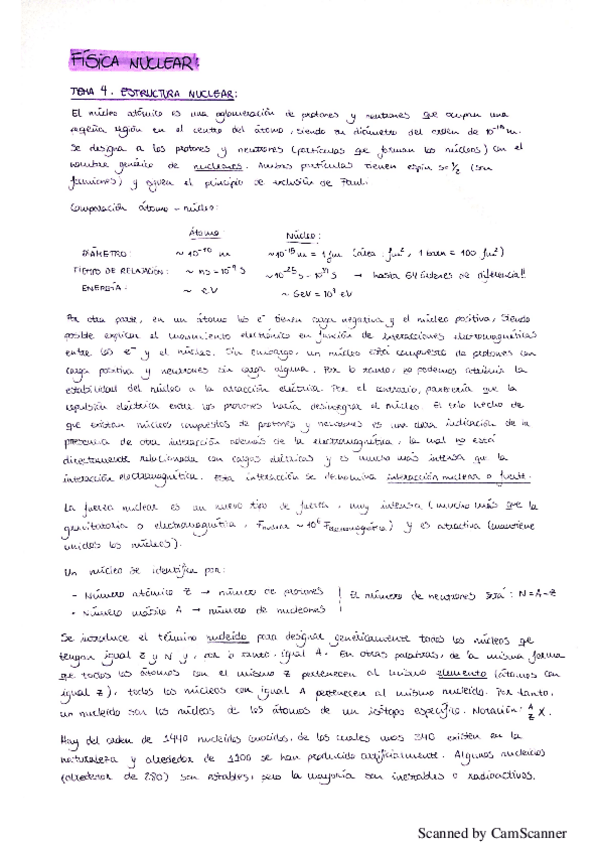 FÍSICA NUCLEAR:
TEMA 4. ESTRUCTURA NUCLEAR:
El núcleo atómico es una aglomeración de protones y neutrones que ocupan una
pequeña región en el centro del átomo, siendo su diámetro del orden de 10⁻¹⁴ m.
Se designa a los protones y neutrones (partículas que forman los núcleos) con el
nombre genérico de nucleones. Ambas partículas tienen espín s=1/2 (son
fermiones) y siguen el principio de exclusión de Pauli.
Comparación átomo - núcleo:
Átomo: Núcleo:
DIÁMETRO: ~10⁻¹⁰ m ~10⁻¹⁵ m = 1 fm (área: fm², 1 barn = 100 fm²)
TIEMPO DE RELAJACIÓN: ~ ns - 10⁻⁹ s → hasta órdenes de diferencia!!
ENERGÍA: ~ eV ~ GeV = 10⁹ eV
Por otra parte, en un átomo los e⁻ tienen carga negativa y el núcleo positiva, siendo
posible explicar el movimiento electrónico en función de interacciones electromagnéticas
entre los e⁻ y el núcleo. Sin embargo, un núcleo está compuesto de protones con
carga positiva y neutrones sin carga alguna. Por lo tanto, no podemos atribuir la
estabilidad del núcleo a la atracción eléctrica. Por el contrario, parecería que la
repulsión eléctrica entre los protones haría desintegrar el núcleo. El solo hecho de
que existan núcleos compuestos de protones y neutrones es una clara indicación de la
presencia de otra interacción además de la electromagnética, la cual no está
directamente relacionada con cargas eléctricas y es mucho más intensa que la
interacción electromagnética. Esta interacción se denomina interacción nuclear o fuerte.
La fuerza nuclear es un nuevo tipo de fuerza, muy intensa (mucho más que la
gravitatoria o electromagnética, Fnuclear ~ 10⁶ Felectromagnética) y es atractiva (mantiene
unidos los núcleos).
Un núcleo se identifica por:
- Número atómico Z → número de protones | El número de neutrones será: N = A-Z
- Número másico A → número de nucleones |
Se introduce el término nucleido para designar genéricamente todos los núcleos que
tengan igual Z y N y, por lo tanto, igual A. En otras palabras, de la misma forma
que todos los átomos con el mismo Z pertenecen al mismo elemento (átomos con
igual Z), todos los núcleos con igual A pertenecen al mismo nucleido. Por tanto,
un nucleido son los núcleos de los átomos de un isótopo específico. Notación: ᴬ_Z X.
Hay del orden de 1440 nucleidos conocidos, de los cuales unos 340 existen en la
naturaleza y alrededor de 1100 se han producido artificialmente. Algunos nucleidos
(alrededor de 280) son estables, pero la mayoría son inestables o radioactivos.
Scanned by CamScanner